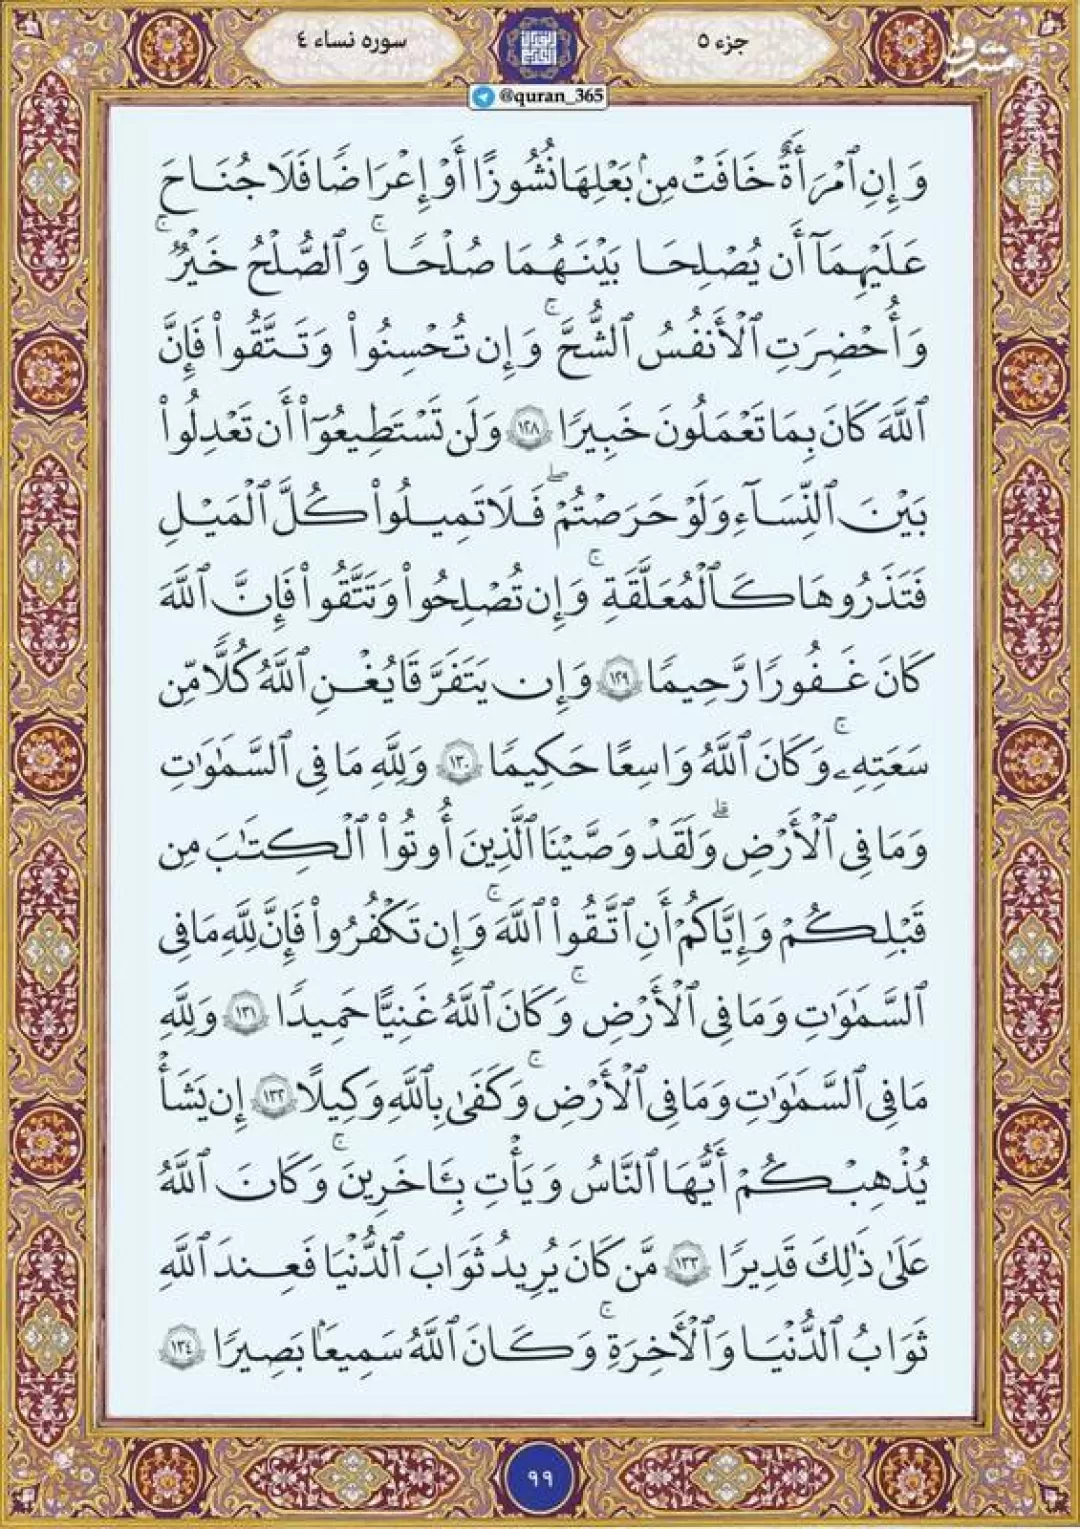 جزء ۵
سوره نساء ٤
@quran_365
وَإِنِ ٱمْرَأَةٌ خَافَتْ مِنۢ بَعْلِهَا نُشُوزًا أَوْ إِعْرَاضًا فَلَا جُنَاحَ
عَلَيْهِمَآ أَن يُصْلِحَا بَيْنَهُمَا صُلْحًا ۚ وَٱلصُّلْحُ خَيْرٌ ۗ
وَأُحْضِرَتِ ٱلْأَنفُسُ ٱلشُّحَّ ۚ وَإِن تُحْسِنُوا۟ وَتَتَّقُوا۟ فَإِنَّ
ٱللَّهَ كَانَ بِمَا تَعْمَلُونَ خَبِيرًا ١٢٨ وَلَن تَسْتَطِيعُوٓا۟ أَن تَعْدِلُوا۟
بَيْنَ ٱلنِّسَآءِ وَلَوْ حَرَصْتُمْ ۖ فَلَا تَمِيلُوا۟ كُلَّ ٱلْمَيْلِ
فَتَذَرُوهَا كَٱلْمُعَلَّقَةِ ۚ وَإِن تُصْلِحُوا۟ وَتَتَّقُوا۟ فَإِنَّ ٱللَّهَ
كَانَ غَفُورًا رَّحِيمًا ١٢٩ وَإِن يَتَفَرَّقَا يُغْنِ ٱللَّهُ كُلًّا مِّن
سَعَتِهِۦ ۚ وَكَانَ ٱللَّهُ وَٰسِعًا حَكِيمًا ١٣٠ وَلِلَّهِ مَا فِى ٱلسَّمَٰوَٰتِ
وَمَا فِى ٱلْأَرْضِ ۗ وَلَقَدْ وَصَّيْنَا ٱلَّذِينَ أُوتُوا۟ ٱلْكِتَٰبَ مِن
قَبْلِكُمْ وَإِيَّاكُمْ أَنِ ٱتَّقُوا۟ ٱللَّهَ ۚ وَإِن تَكْفُرُوا۟ فَإِنَّ لِلَّهِ مَا فِى
ٱلسَّمَٰوَٰتِ وَمَا فِى ٱلْأَرْضِ ۚ وَكَانَ ٱللَّهُ غَنِيًّا حَمِيدًا ١٣١ وَلِلَّهِ
مَا فِى ٱلسَّمَٰوَٰتِ وَمَا فِى ٱلْأَرْضِ ۚ وَكَفَىٰ بِٱللَّهِ وَكِيلًا ١٣٢ إِن يَشَأْ
يُذْهِبْكُمْ أَيُّهَا ٱلنَّاسُ وَيَأْتِ بِـَٔاخَرِينَ ۚ وَكَانَ ٱللَّهُ
عَلَىٰ ذَٰلِكَ قَدِيرًا ١٣٣ مَّن كَانَ يُرِيدُ ثَوَابَ ٱلدُّنْيَا فَعِندَ ٱللَّهِ
ثَوَابُ ٱلدُّنْيَا وَٱلْأَخِرَةِ ۚ وَكَانَ ٱللَّهُ سَمِيعًۢا بَصِيرًا ١٣٤
٩٩